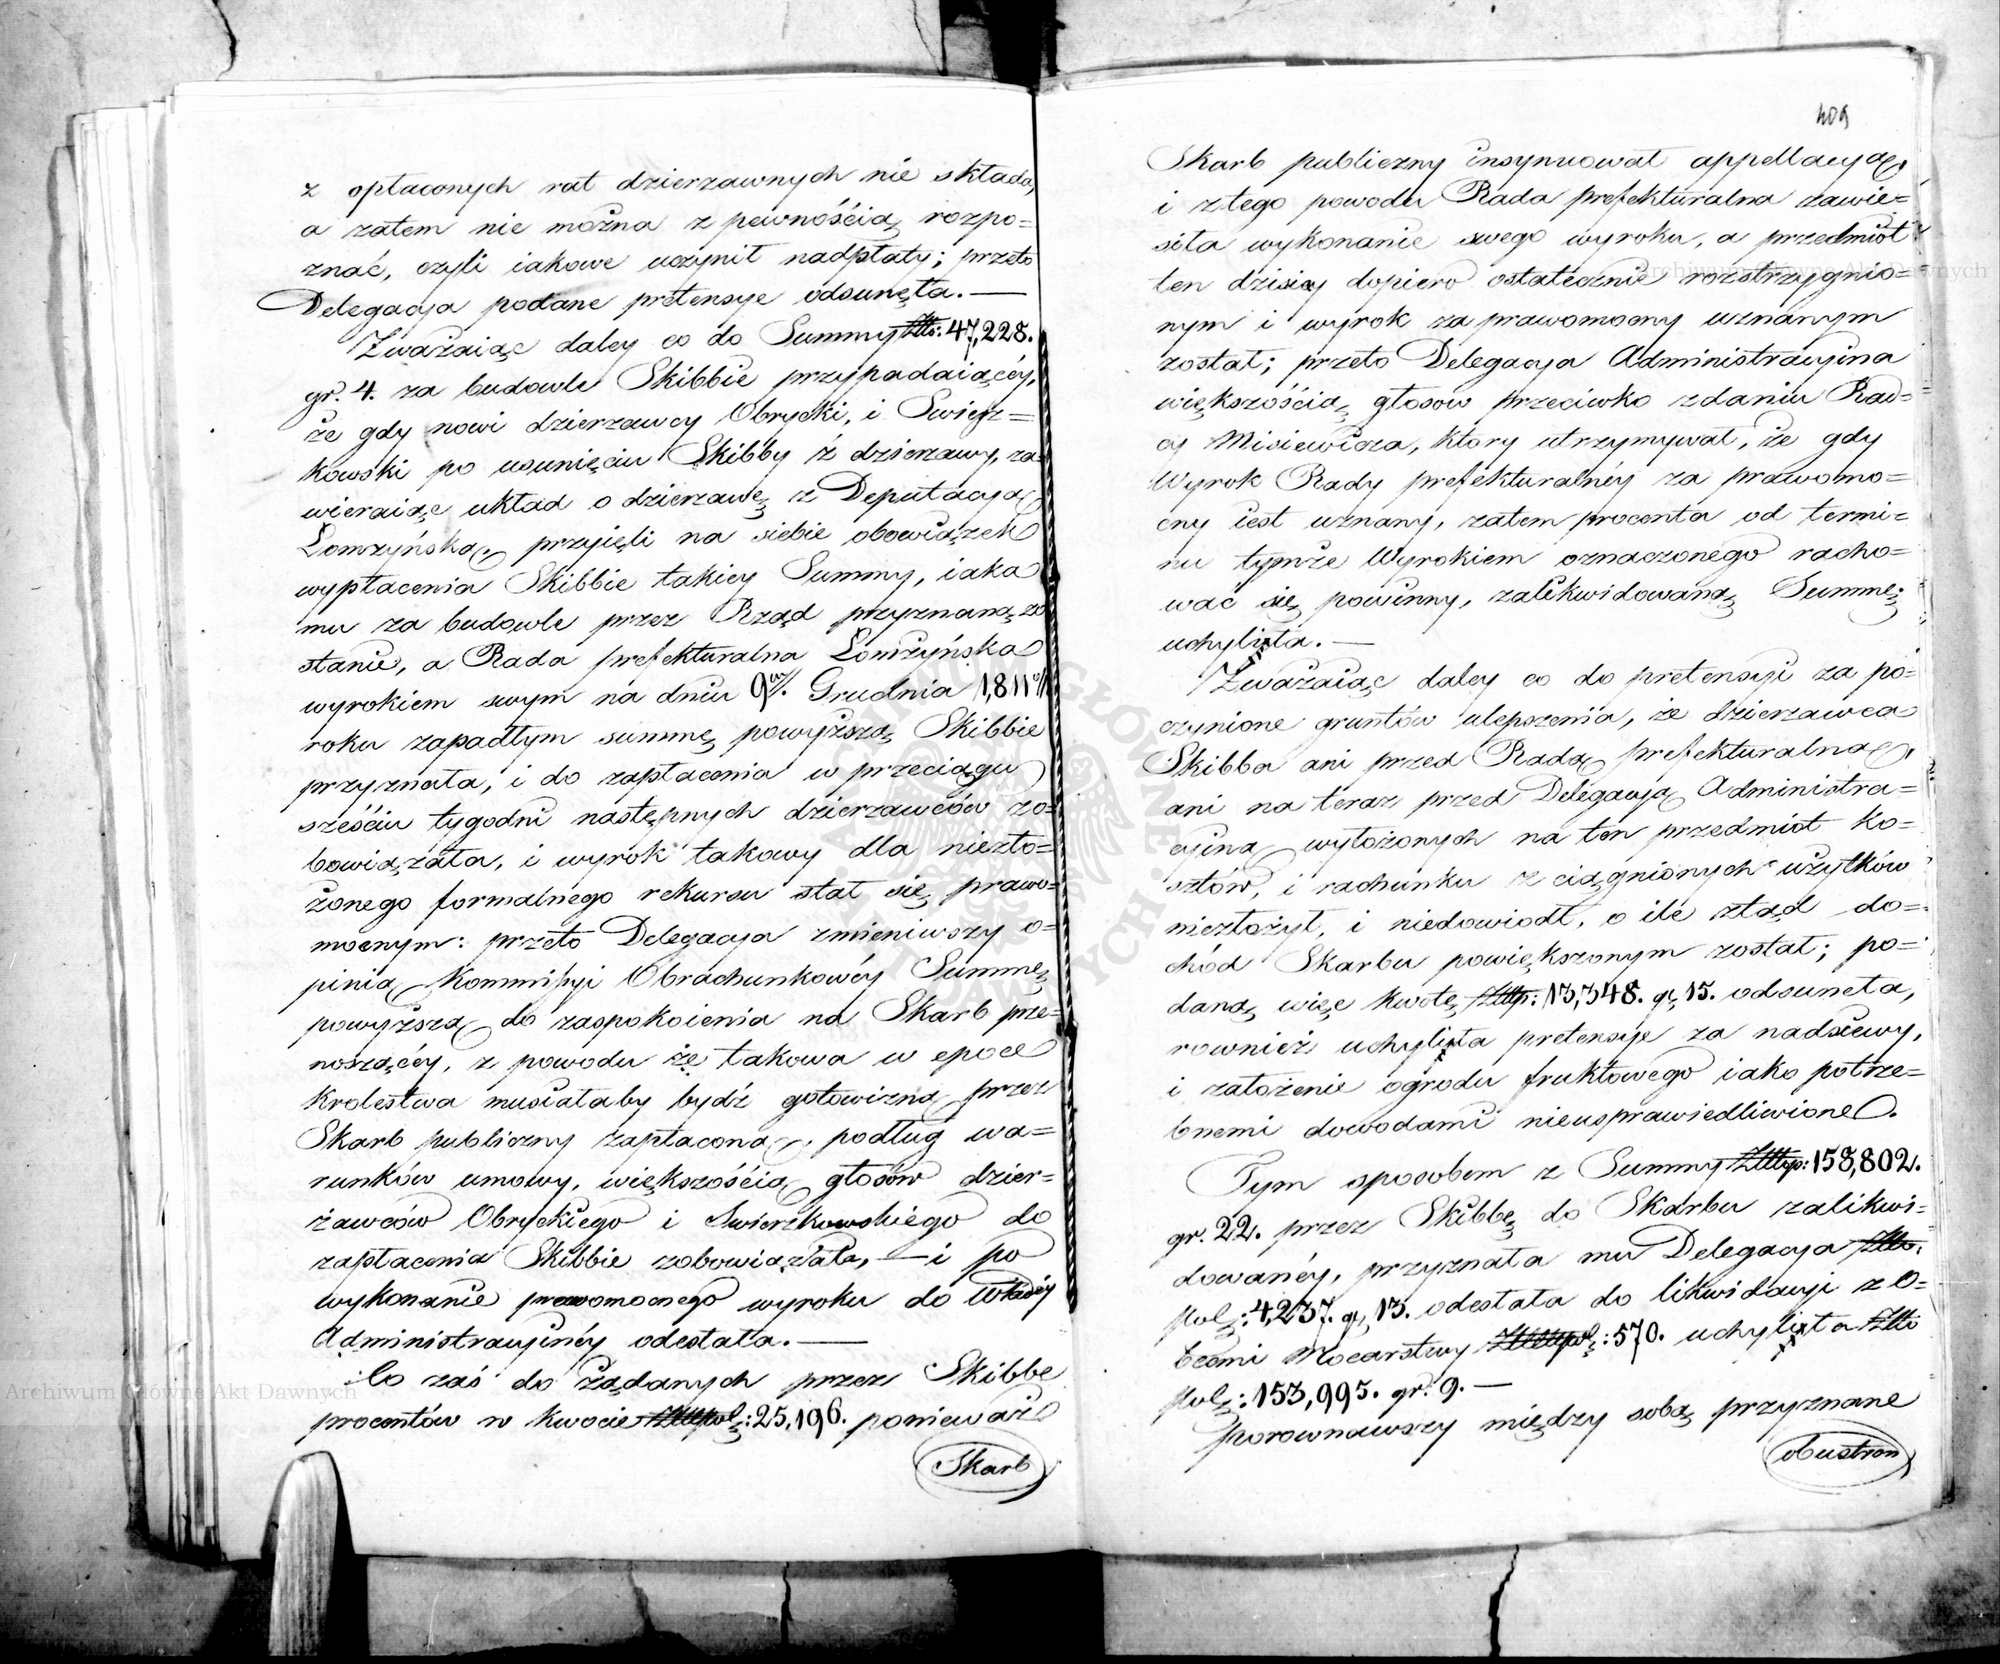 z opłaconych rat dzierzawnych nie składa,
a zatem nie można z pewnośćią rozpo=
znać, czyli iakowe uczynił nadpłaty; przeto
Delegacja podane pretensye odsunęła. —
Zważaiąc daley co do Summy Złło: 47,228.
gr. 4. za budowle Skibbie przypadaiącéy,
że gdy nowi dzierzawcy Obrycki, i Swierz=
kowski po usunięciu Skibby z dzierzawy, za=
wieraiąc układ o dzierzawę z Deputacyą
Łomżyńską, przyięli na siebie obowiązek
wypłacenia Skibbie takiey Summy, iaka
mu za budowle przez Rząd przyznaną zo
stanie, a Rada prefekturalna Łomżyńska
wyrokiem swym na dniu 9go Grudnia 1,811go
roku zapadłym summę powyższą Skibbie
przyznała, i do zapłacenia w przeciągu
sześciu tygodni następnych dzierzawców zo=
bowiązała, i wyrok takowy dla niezło=
żonego formalnego rekursu stał się prawo=
mocnym: przeto Delegacja zmieniwszy o=
pinią Kommissyi Obrachunkowéy Summę
powyższą do zaspokoienia na Skarb prze=
noszącéy, z powodu że takowa w epoce
Krolestwa musiałaby bydź gotowizną przez
Skarb publiczny zapłaconą, podług wa=
runków umowy, większośćią głosów dzier=
żawców Obryckiego i Swierzkowskiego do
zapłacenia Skibbie zobowiązała, — i po
wykonanie prawomocnego wyroku do Władzy
Administracyinéy odesłała. —
Co zaś do żądanych przez Skibbę
procentów w kwocie Złłpol: 25,196. ponieważ
Skarb
409
Skarb publiczny insynuował appellacyą,
i z tego powodu Rada prefekturalna zawie=
siła wykonanie swego wyroku, a przedmiot
ten dzisiay dopiero ostatecznie rozstrzygnio=
nym i wyrok za prawomocny uznanym
został; przeto Delegacja Administracyina
większośćią głosow przeciwko zdaniu Rad=
cy Misiewicza, ktory utrzymywał, że gdy
Wyrok Rady prefekturalnéy za prawomo=
cny iest uznany, zatem procenta od termi=
nu tymże Wyrokiem oznaczonego racho=
wać się powinny, zalikwidowaną Summę
uchyliła. —
Zważaiąc daley co do pretensyi za po=
czynione gruntów ulepszenia, że dzierzawca
Skibba ani przed Radą prefekturalną,
ani na teraz przed Delegacją Administra=
cyiną wyłożonych na ten przedmiot ko=
sztów, i rachunku z ciągnionych użytków
niezłożył, i niedowiodł, o ile ztąd do=
chód Skarbu powiększonym został; po=
daną więc kwotę Złłp: 13,348. gr. 15. odsuneła,
rownież uchyliła pretensye za nadsiewy,
i założenie ogrodu fruktowego iako potrze=
bnemi dowodami nieusprawiedliwione.
Tym sposobem z Summy Złłp: 158,802.
gr. 22. przez Skibbę do Skarbu zalikwi=
dowanéy, przyznała mu Delegacja Złło:
pol: 4,237. gr. 13. odesłała do likwidacyi z O=
bcemi Mocarstwy Złłpol: 570. uchyliła Złło
pol: 153,995. gr: 9. —
Porownawszy między sobą przyznane
obustron
Archiwum Główne Akt Dawnych